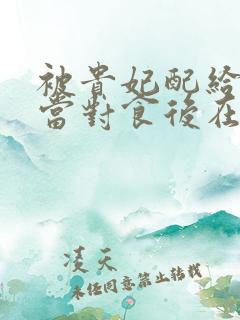 被貴妃配給
當對食後在
凌天
未經同意禁止轉載